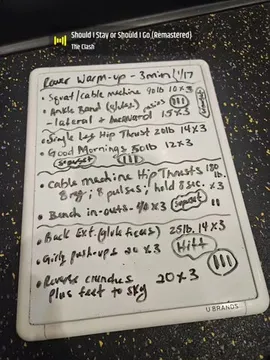 Should I Stay or Should I Go (Remastered)
The Clash
Rower Warm-up - 3min 1/17
• Squat/cable machine 90lb 10x3
• Ankle Band (glutes)
lateral + backward 15x3 III
superset
• Single Leg Hip Thrust 20lb 14x3
• Good Mornings 50lb 12x3
superset III
• Cable machine Hip Thrusts 180 lb.
8 reg; 8 pulses; hold 8 sec. x3
• Bench in-outs - 40x3 superset II
• Back Ext. (glute focus) 25lb. 14x3
• Girly push-ups 20x3 Hiit
• Reverse crunches 20x3 III
plus feet to sky
U BRANDS